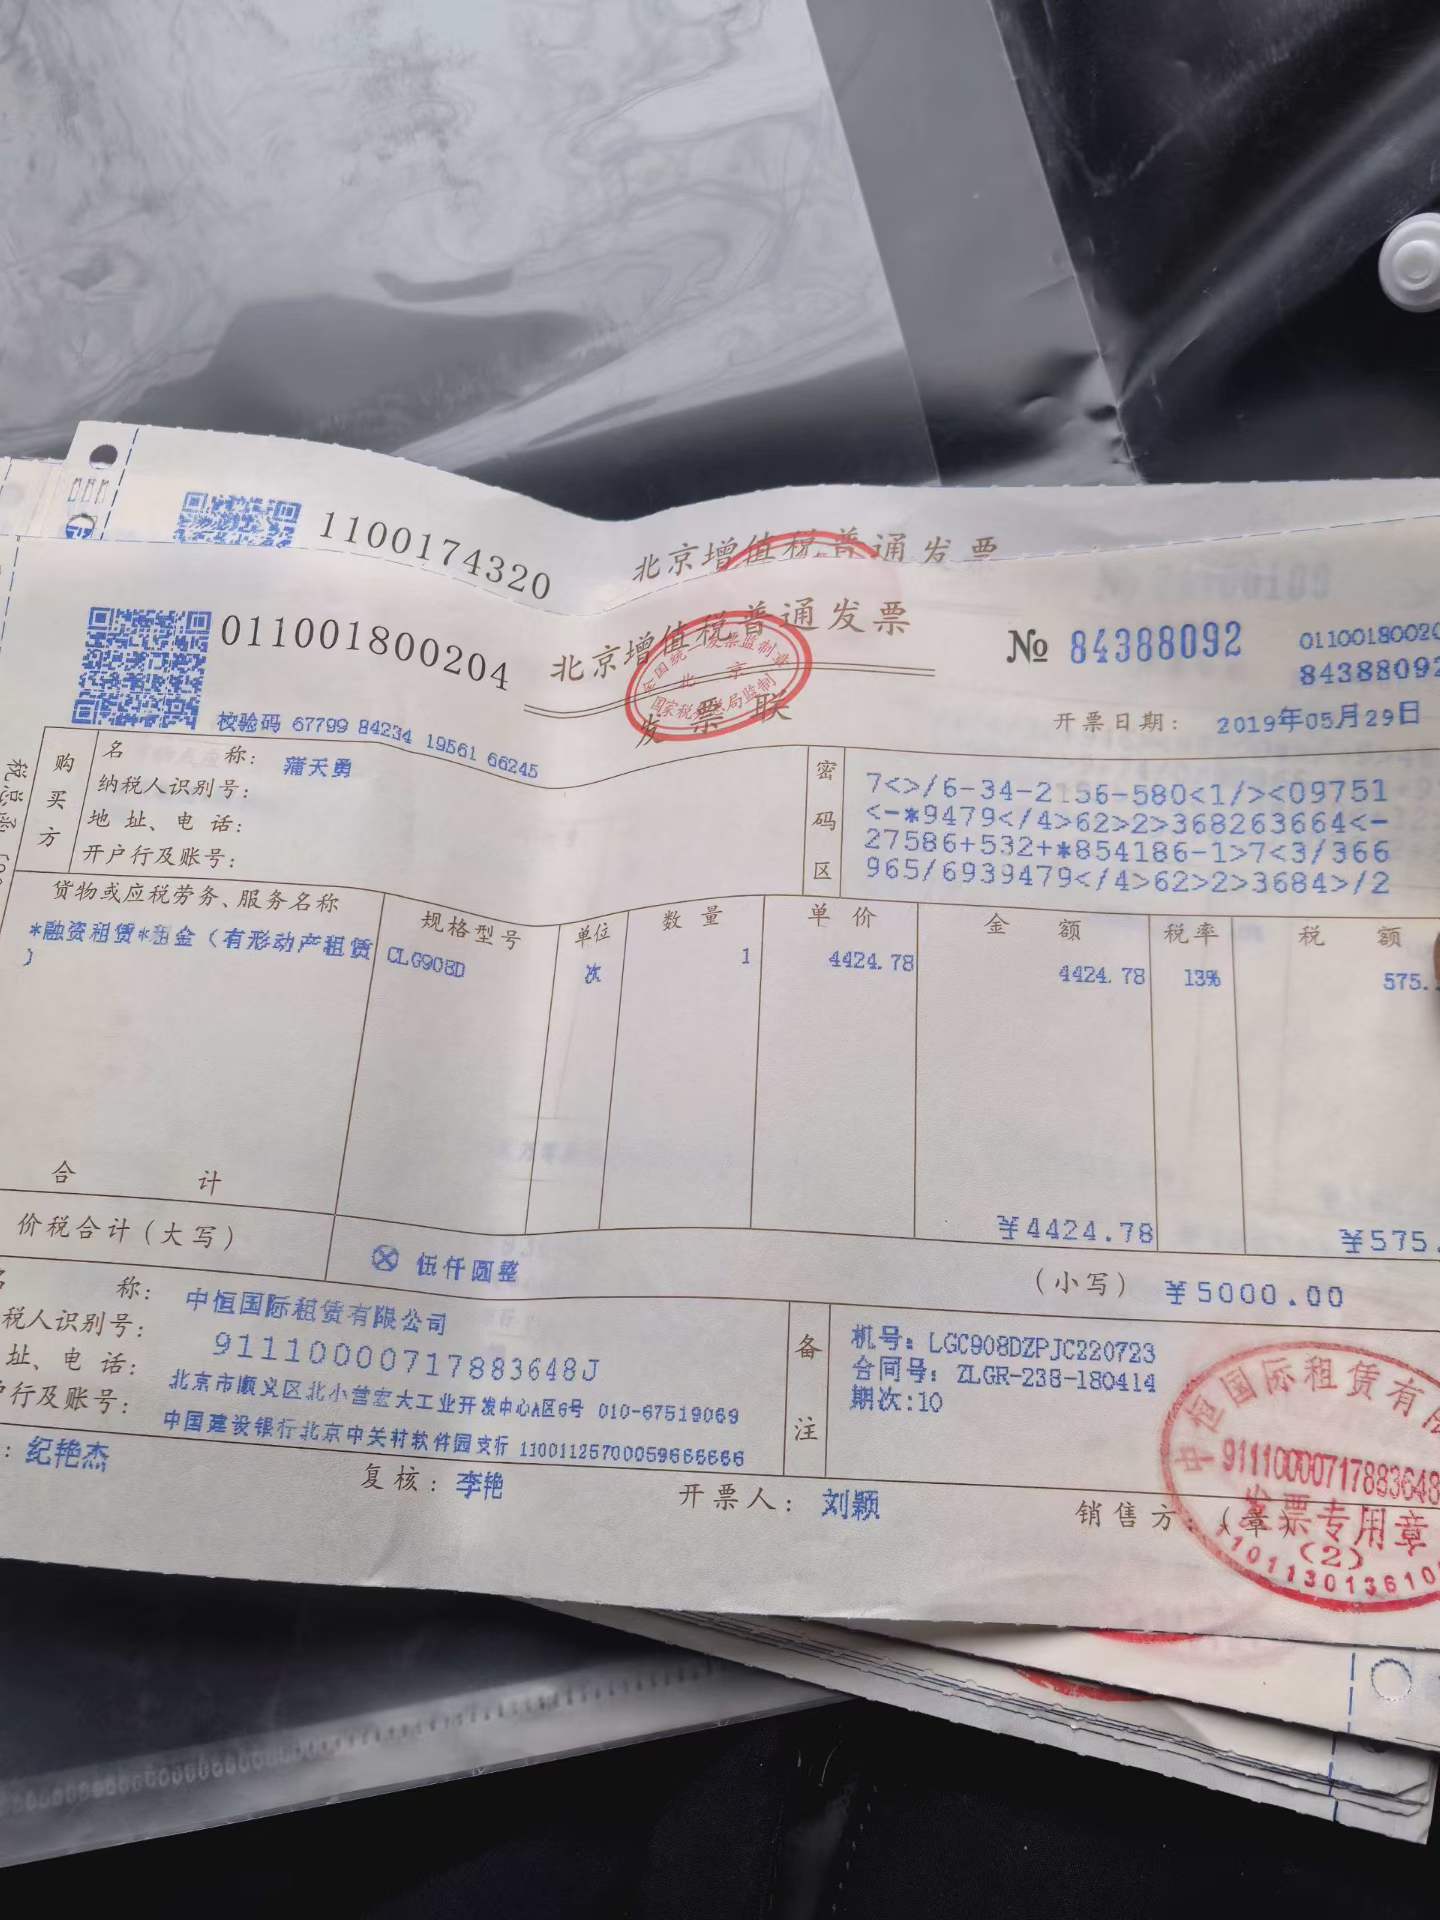 1100174320
北京增值税普通发票
011001800204
北京增值税普通发票
发票联
全国统一发票监制章
北京
国家税务总局监制
№ 84388092
011001800204
84388092
校验码 67799 84234 19561 66245
开票日期: 2019年05月29日
购买方
名 称: 蒲天勇
纳税人识别号:
地 址、电 话:
开户行及账号:
密码区
7<>/6-34-2156-580<1/><09751
<-*9479</4>62>2>368263664<-
27586+532+*854186-1>7<3/366
965/6939479</4>62>2>3684>/2
货物或应税劳务、服务名称 规格型号 单位 数 量 单 价 金 额 税率 税 额
*融资租赁*租金(有形动产租赁 CLG908D 次 1 4424.78 4424.78 13% 575.
)
合 计 ¥4424.78 ¥575.
价税合计(大写) ⊗ 伍仟圆整 (小写) ¥5000.00
名 称: 中恒国际租赁有限公司
税人识别号: 91110000717883648J
址、电 话: 北京市顺义区北小营宏大工业开发中心A区6号 010-67519069
户行及账号: 中国建设银行北京中关村软件园支行 11001125700059666666
备注
机号: LGC908DZPJC220723
合同号: ZLGR-238-180414
期次:10
: 纪艳杰 复核: 李艳 开票人: 刘颖 销售方:(章)
中恒国际租赁有限
91110000717883648
发票专用章
(2)